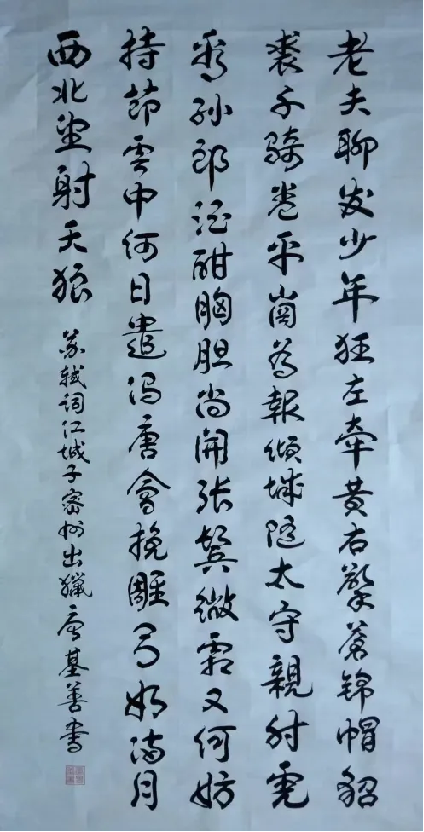 老夫聊发少年狂左牵黄右擎苍锦帽貂
裘千騎卷平崗为報倾城随太守親射虎
看孙郎酒酣胸胆尚開张鬓微霜又何妨
持節雲中何日遣冯唐會挽雕弓如满月
西北望射天狼 苏轼词江城子密州出獵 唐基善書